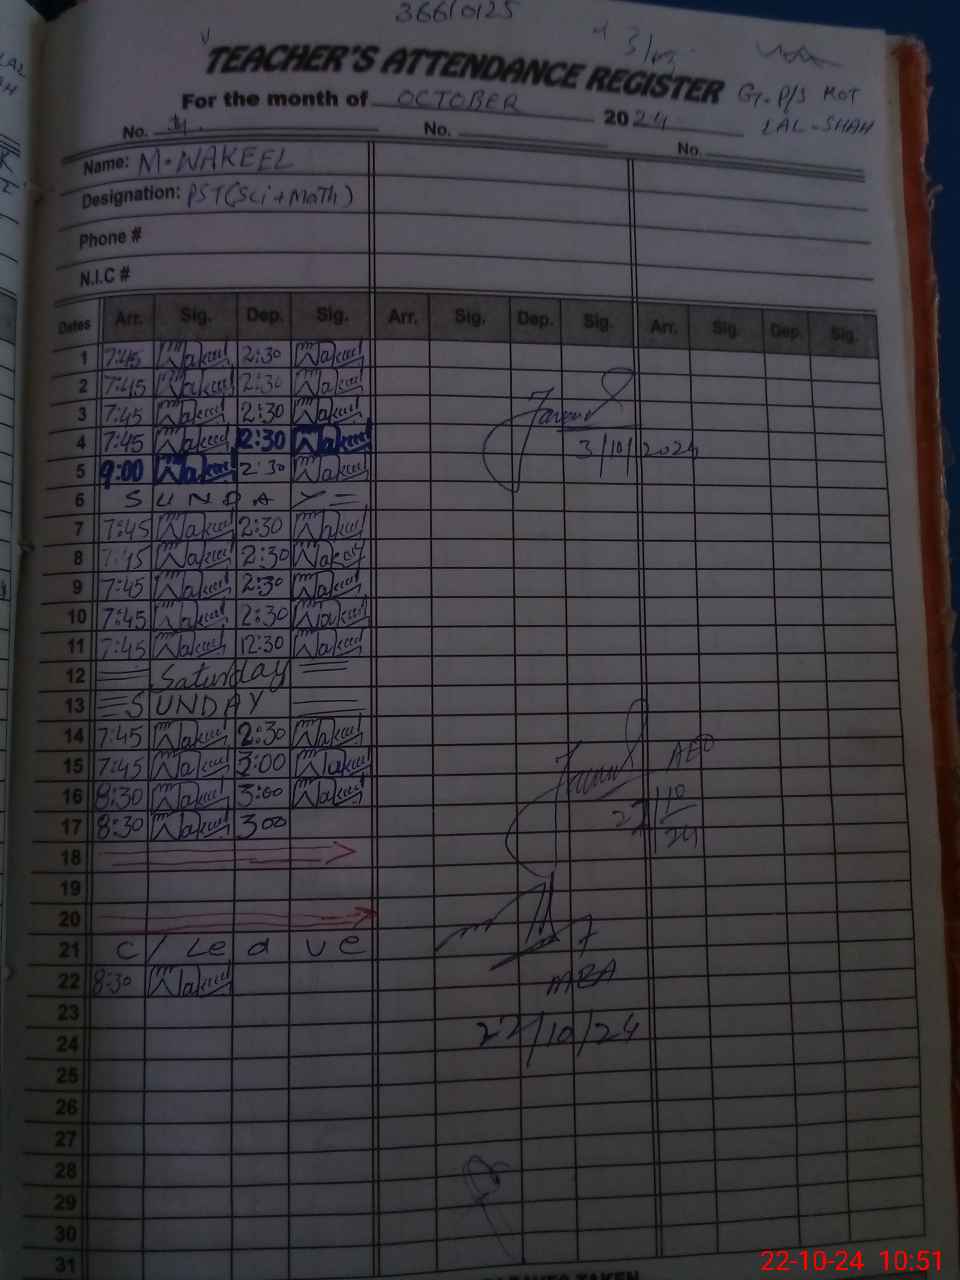 36610125
TEACHER'S ATTENDANCE REGISTER
G. P/S KOT
LAL-SHAH
For the month of OCTOBER 2024
No. No. No.
Name: M. WAKEEL
Designation: PST(Sci+MaTh)
Phone #
N.I.C #
Dates Arr. Sig. Dep. Sig. Arr. Sig. Dep. Sig. Arr. Sig. Dep. Sig.
1 7:45 Wakeel 2:30 Wakeel
2 7:45 Wakeel 2:30 Wakeel
3 7:45 Wakeel 2:30 Wakeel
4 7:45 Wakeel 12:30 Wakeel 3/10/2024
5 9:00 Wakeel 2:30 Wakeel
6 SUNDAY
7 7:45 Wakeel 2:30 Wakeel
8 7:45 Wakeel 2:30 Wakeel
9 7:45 Wakeel 2:30 Wakeel
10 7:45 Wakeel 2:30 Wakeel
11 7:45 Wakeel 12:30 Wakeel
12 Saturday
13 SUNDAY
14 7:45 Wakeel 2:30 Wakeel
15 7:45 Wakeel 3:00 Wakeel AEO
16 8:30 Wakeel 3:00 Wakeel
17 8:30 Wakeel 3:00
18
19
20
21 C/Leave
22 8:30 Wakeel MEA
23
24 22/10/24
25
26
27
28
29
30
31
22-10-24 10:51